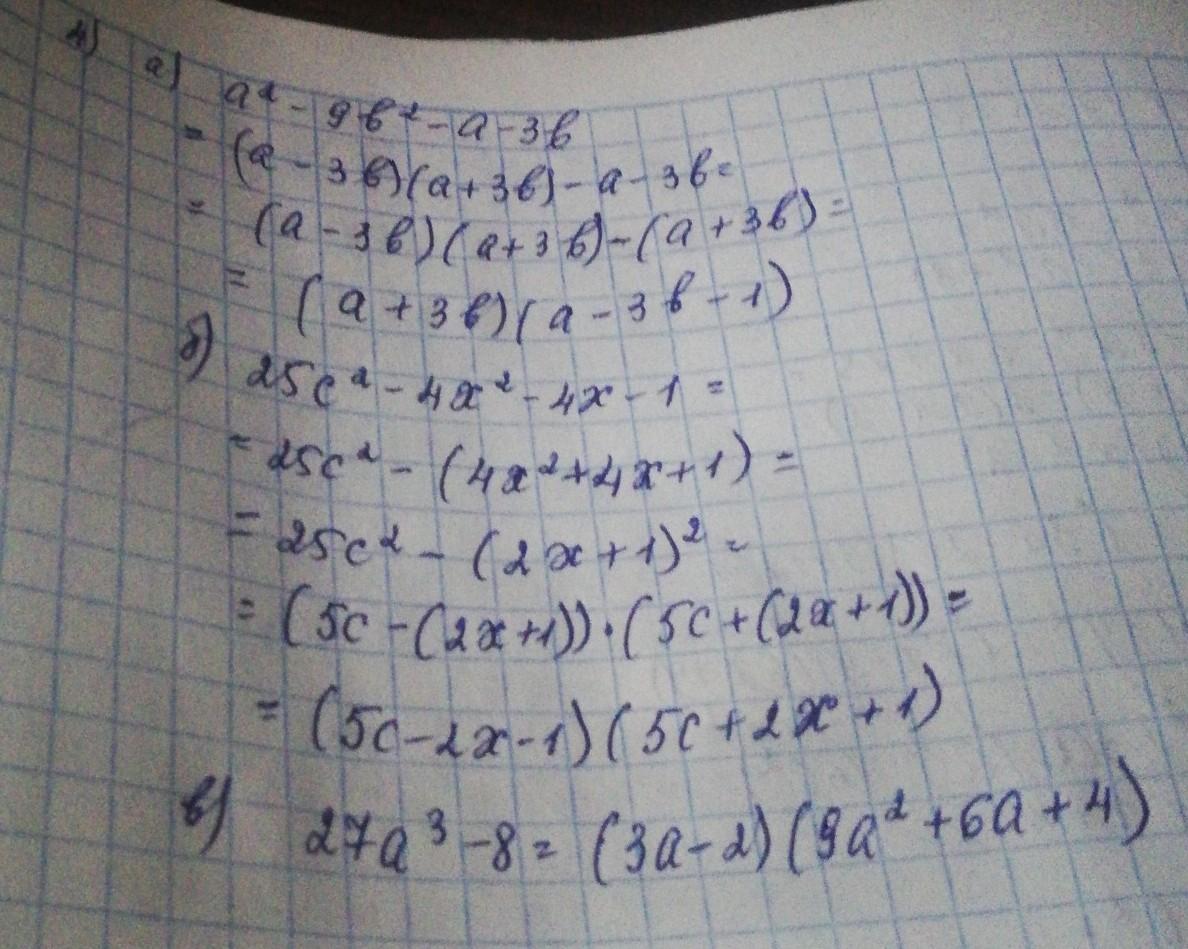 4) а) a² - 9b² - a - 3b
= (a - 3b)(a + 3b) - a - 3b =
= (a - 3b)(a + 3b) - (a + 3b) =
= (a + 3b)(a - 3b - 1)
б) 25c² - 4x² - 4x - 1 =
= 25c² - (4x² + 4x + 1) =
= 25c² - (2x + 1)² =
= (5c - (2x + 1)) · (5c + (2x + 1)) =
= (5c - 2x - 1)(5c + 2x + 1)
в) 27a³ - 8 = (3a - 2)(9a² + 6a + 4)